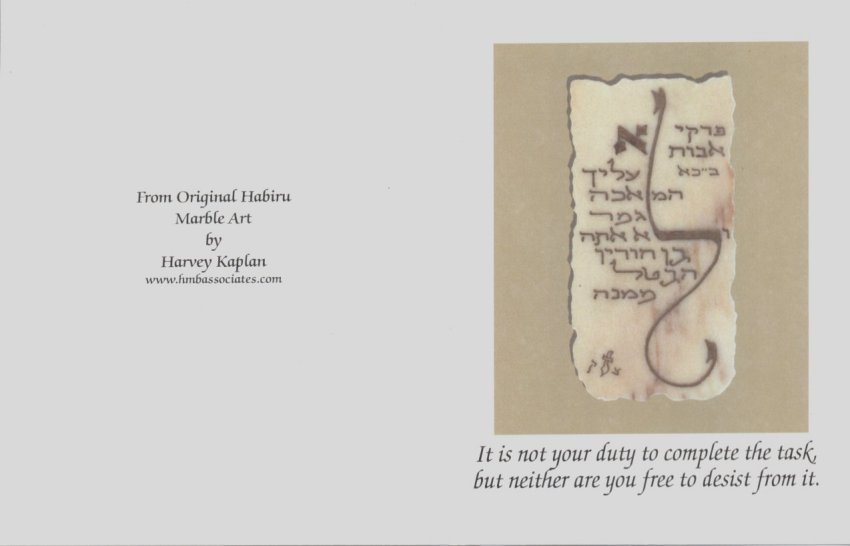 From Original Habiru
Marble Art
by
Harvey Kaplan
www.hmbassociates.com
פרקי
אבות
ב״כא
לא
עליך
המלאכה
לגמר
ולא אתה
בן חורין
להבטל
ממנה
It is not your duty to complete the task,
but neither are you free to desist from it.